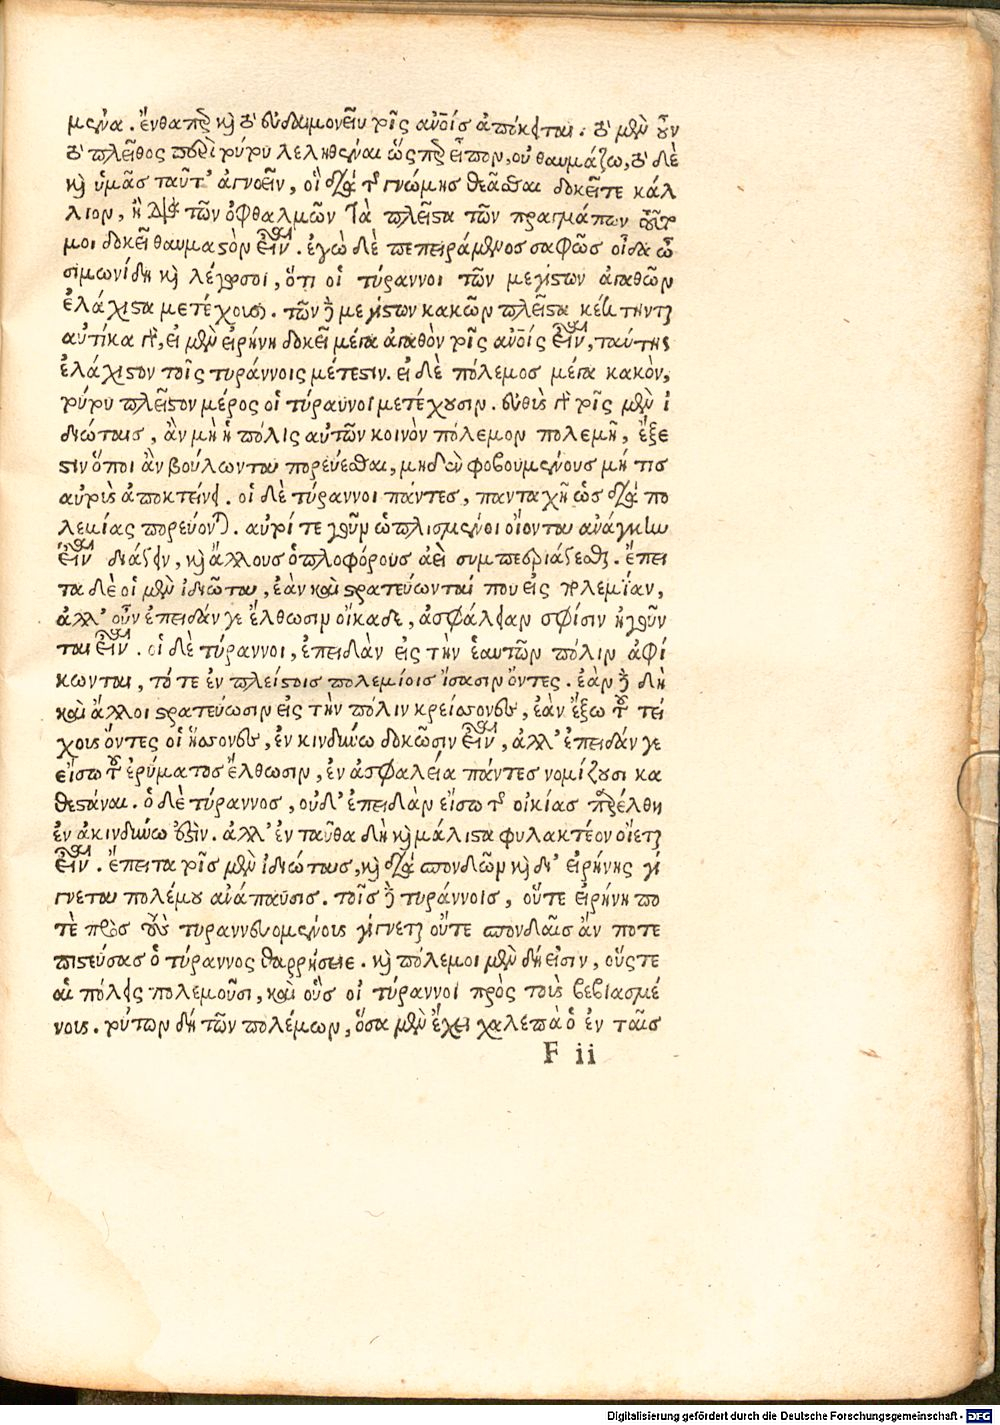 μένα. ἔνθαπερ καὶ τὸ εὐδαιμονεῖν τοῖς ἀνθρώποις ἀπόκειται. τὸ μὲν οὖν
τὸ πλῆθος περὶ τούτου λεληθέναι ὥςπερ εἶπον, οὐ θαυμάζω, τὸ δὲ
καὶ ὑμᾶς ταῦτ' ἀγνοεῖν, οἳ διὰ τῆς γνώμης θεᾶσθαι δοκεῖτε κάλ
λιον, ἢ διὰ τῶν ὀφθαλμῶν τὰ πλεῖστα τῶν πραγμάτων τοῦτο
μοι δοκεῖ θαυμαστὸν εἶναι. ἐγὼ δὲ πεπειραμένος σαφῶς οἶδα ὦ
σιμωνίδη καὶ λέγω σοι, ὅτι οἱ τύραννοι τῶν μεγίστων ἀγαθῶν
ἐλάχιστα μετέχουσι. τῶν δὲ μεγίστων κακῶν πλεῖστα κέκτηνται
αὐτίκα γὰρ, εἰ μὲν εἰρήνη δοκεῖ μέγα ἀγαθὸν τοῖς ἀνθρώποις εἶναι, ταύτης
ἐλάχιστον τοῖς τυράννοις μέτεστιν. εἰ δὲ πόλεμος μέγα κακὸν,
τούτου πλεῖστον μέρος οἱ τύραννοι μετέχουσιν. εὐθὺς γὰρ τοῖς μὲν ἰ
διώταις, ἂν μὴ ἡ πόλις αὐτῶν κοινὸν πόλεμον πολεμῇ, ἔξε
στιν ὅποι ἂν βούλωνται πορεύεσθαι, μηδὲν φοβουμένους μή τις
αὐτοὺς ἀποκτείνῃ. οἱ δὲ τύραννοι πάντες, πανταχῇ ὡς διὰ πο
λεμίας πορεύονται. αὐτοί τε γοῦν ὡπλισμένοι οἴονται ἀνάγκην
εἶναι διάγειν, καὶ ἄλλους ὁπλοφόρους ἀεὶ συμπεριάγεσθαι. ἔπει
τα δὲ οἱ μὲν ἰδιῶται, ἐὰν καὶ στρατεύωνταί που εἰς πολεμίαν,
ἀλλ' οὖν ἐπειδάν γε ἔλθωσιν οἴκαδε, ἀσφάλειαν σφίσιν ἡγοῦν
ται εἶναι. οἱ δὲ τύραννοι, ἐπειδὰν εἰς τὴν ἑαυτῶν πόλιν ἀφί
κωνται, τότε ἐν πλείστοις πολεμίοις ἴσασιν ὄντες. ἐὰν δὲ δὴ
καὶ ἄλλοι στρατεύωσιν εἰς τὴν πόλιν κρείσσονες, ἐὰν ἔξω τοῦ τεί
χους ὄντες οἱ ἥσσονες, ἐν κινδύνῳ δοκῶσιν εἶναι, ἀλλ' ἐπειδάν γε
εἴσω τοῦ ἐρύματος ἔλθωσιν, ἐν ἀσφαλείᾳ πάντες νομίζουσι κα
θεστάναι. ὁ δὲ τύραννος, οὐδ' ἐπειδὰν εἴσω τῆς οἰκίας παρέλθῃ
ἐν ἀκινδύνῳ ἐστὶν. ἀλλ' ἐνταῦθα δὴ καὶ μάλιστα φυλακτέον οἴεται
εἶναι. ἔπειτα τοῖς μὲν ἰδιώταις, καὶ διὰ σπονδῶν καὶ δι' εἰρήνης γί
γνεται πολέμου ἀνάπαυσις. τοῖς δὲ τυράννοις, οὔτε εἰρήνη πο
τὲ πρὸς τοὺς τυραννευομένους γίγνεται οὔτε σπονδαῖς ἄν ποτε
πιστεύσας ὁ τύραννος θαρρήσειε. καὶ πόλεμοι μὲν δή εἰσιν, οὕς τε
αἱ πόλεις πολεμοῦσι, καὶ οὓς οἱ τύραννοι πρὸς τοὺς βεβιασμέ
νους. τούτων δὴ τῶν πολέμων, ὅσα μὲν ἔχει χαλεπὰ ὁ ἐν ταῖς
F ii
Digitalisierung gefördert durch die Deutsche Forschungsgemeinschaft - DFG